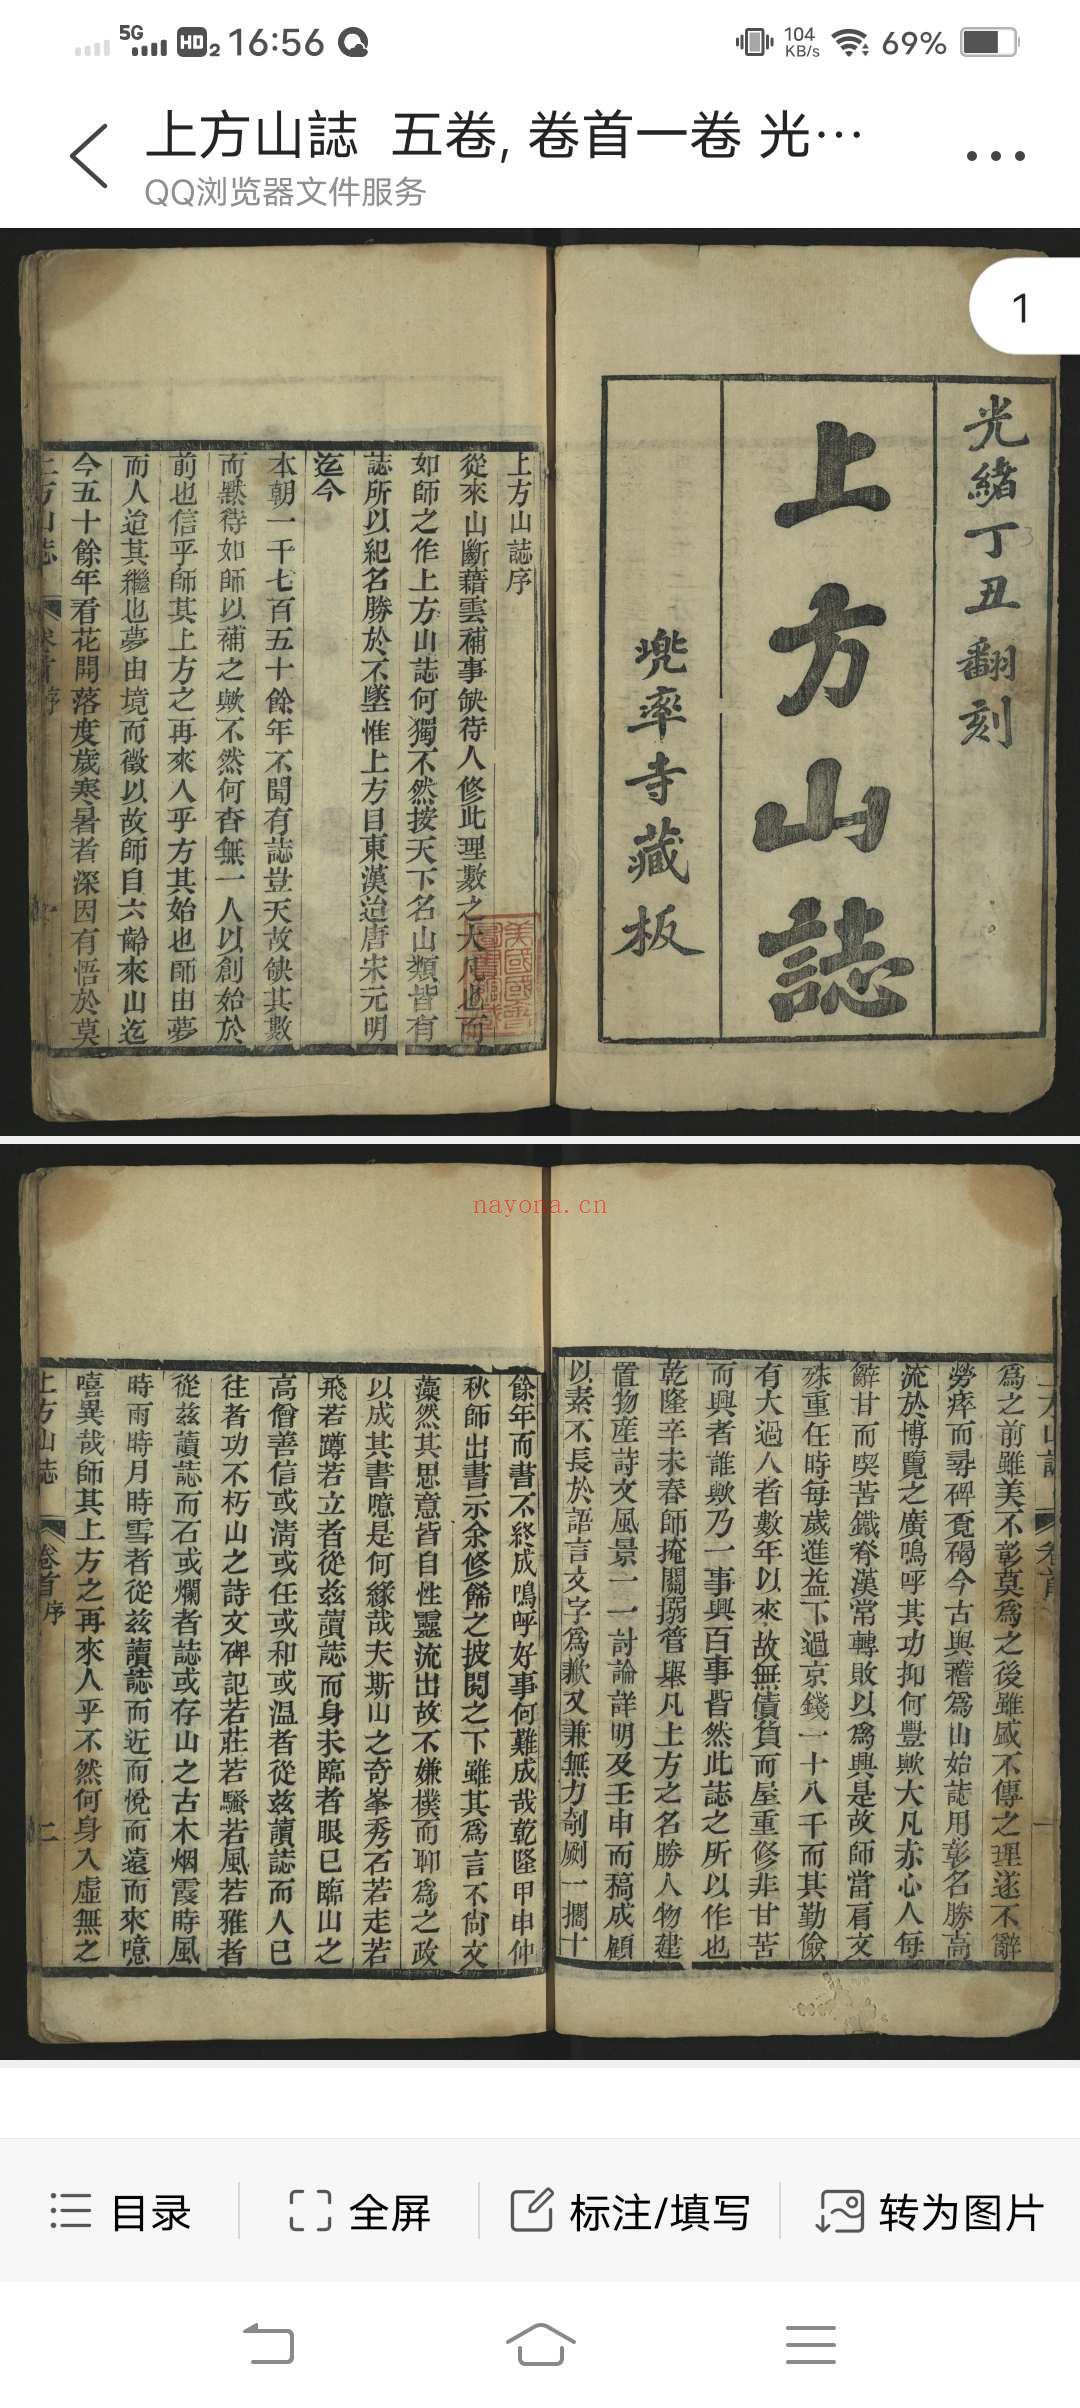 5G HD 2 16:56 104 KB/s 69%
上方山誌 五卷, 卷首一卷 光…
QQ浏览器文件服务
1
光緒丁丑翻刻
上方山誌
兠率寺藏板
上方山誌序
從來山斷藉雲補事缺待人修此理數之大凡也而
如師之作上方山誌何獨不然按天下名山類皆有
誌所以紀名勝於不墜惟上方目東漢迨唐宋元明
迄今
本朝一千七百五十餘年不聞有誌豈天故缺其數
而默待如師以補之歟不然何杳無一人以創始於
前也信乎師其上方之再來人乎方其始也師由夢
而人迨其繼也夢由境而徵以故師自六齡來山迄
今五十餘年看花開落度歲寒暑者深因有悟於莫
上方山誌 卷首序 一
nayona.cn
為之前雖美不彰莫為之後雖盛不傳之理遂不辭
勞瘁而尋碑覓碣今古與稽為山始誌用彰名勝高
流於博覽之廣鳴呼其功抑何豐歟大凡赤心人每
辭甘而喫苦鐵脊漢常轉敗以為興是故師當肩交
殊重任時每歲進益不過京錢一十八千而其勤儉
有大過人者數年以來故無債貨而屋重修非甘苦
而興者誰歟乃一事興百事皆然此誌之所以作也
乾隆辛未春師掩關搦管舉凡上方之名勝人物建
置物産詩文風景一一討論詳明及壬申而稿成顧
以素不長於語言文字為歉又兼無力剞劂一擱十
餘年而書不終成鳴呼好事何難成哉乾隆甲申仲
秋師出書示余修餙之披閱之下雖其為言不尙文
藻然其思意皆自性靈流出故不嫌樸而聊為之政
以成其書噫是何緣哉夫斯山之奇峯秀石若走若
飛若蹲若立者從兹讀誌而身未臨者眼巳臨山之
高僧善信或淸或任或和或温者從兹讀誌而人巳
往者功不朽山之詩文碑記若莊若騷若風若雅者
從兹讀誌而石或爛者誌或存山之古木烟霞時風
時雨時月時雪者從兹讀誌而近而悅而遠而來噫
嘻異哉師其上方之再來人乎不然何身入虛無之
上方山誌 卷首序 二
目录 全屏 标注/填写 转为图片